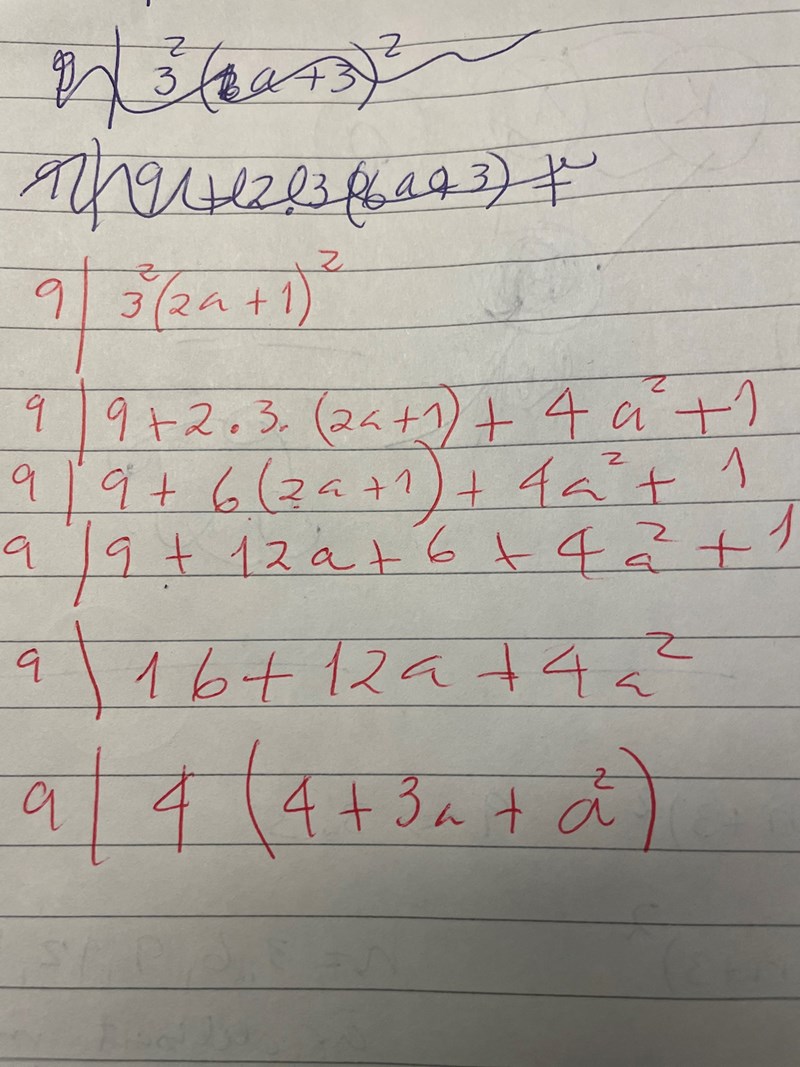 9 | 3²(6a+3)²
9 | 3²(2a+1)²
9 | 9+2.3.(2a+1)+4a²+1
9 | 9+6(2a+1)+4a²+1
9 | 9+12a+6+4a²+1
9 | 16+12a+4a²
9 | 4(4+3a+a²)